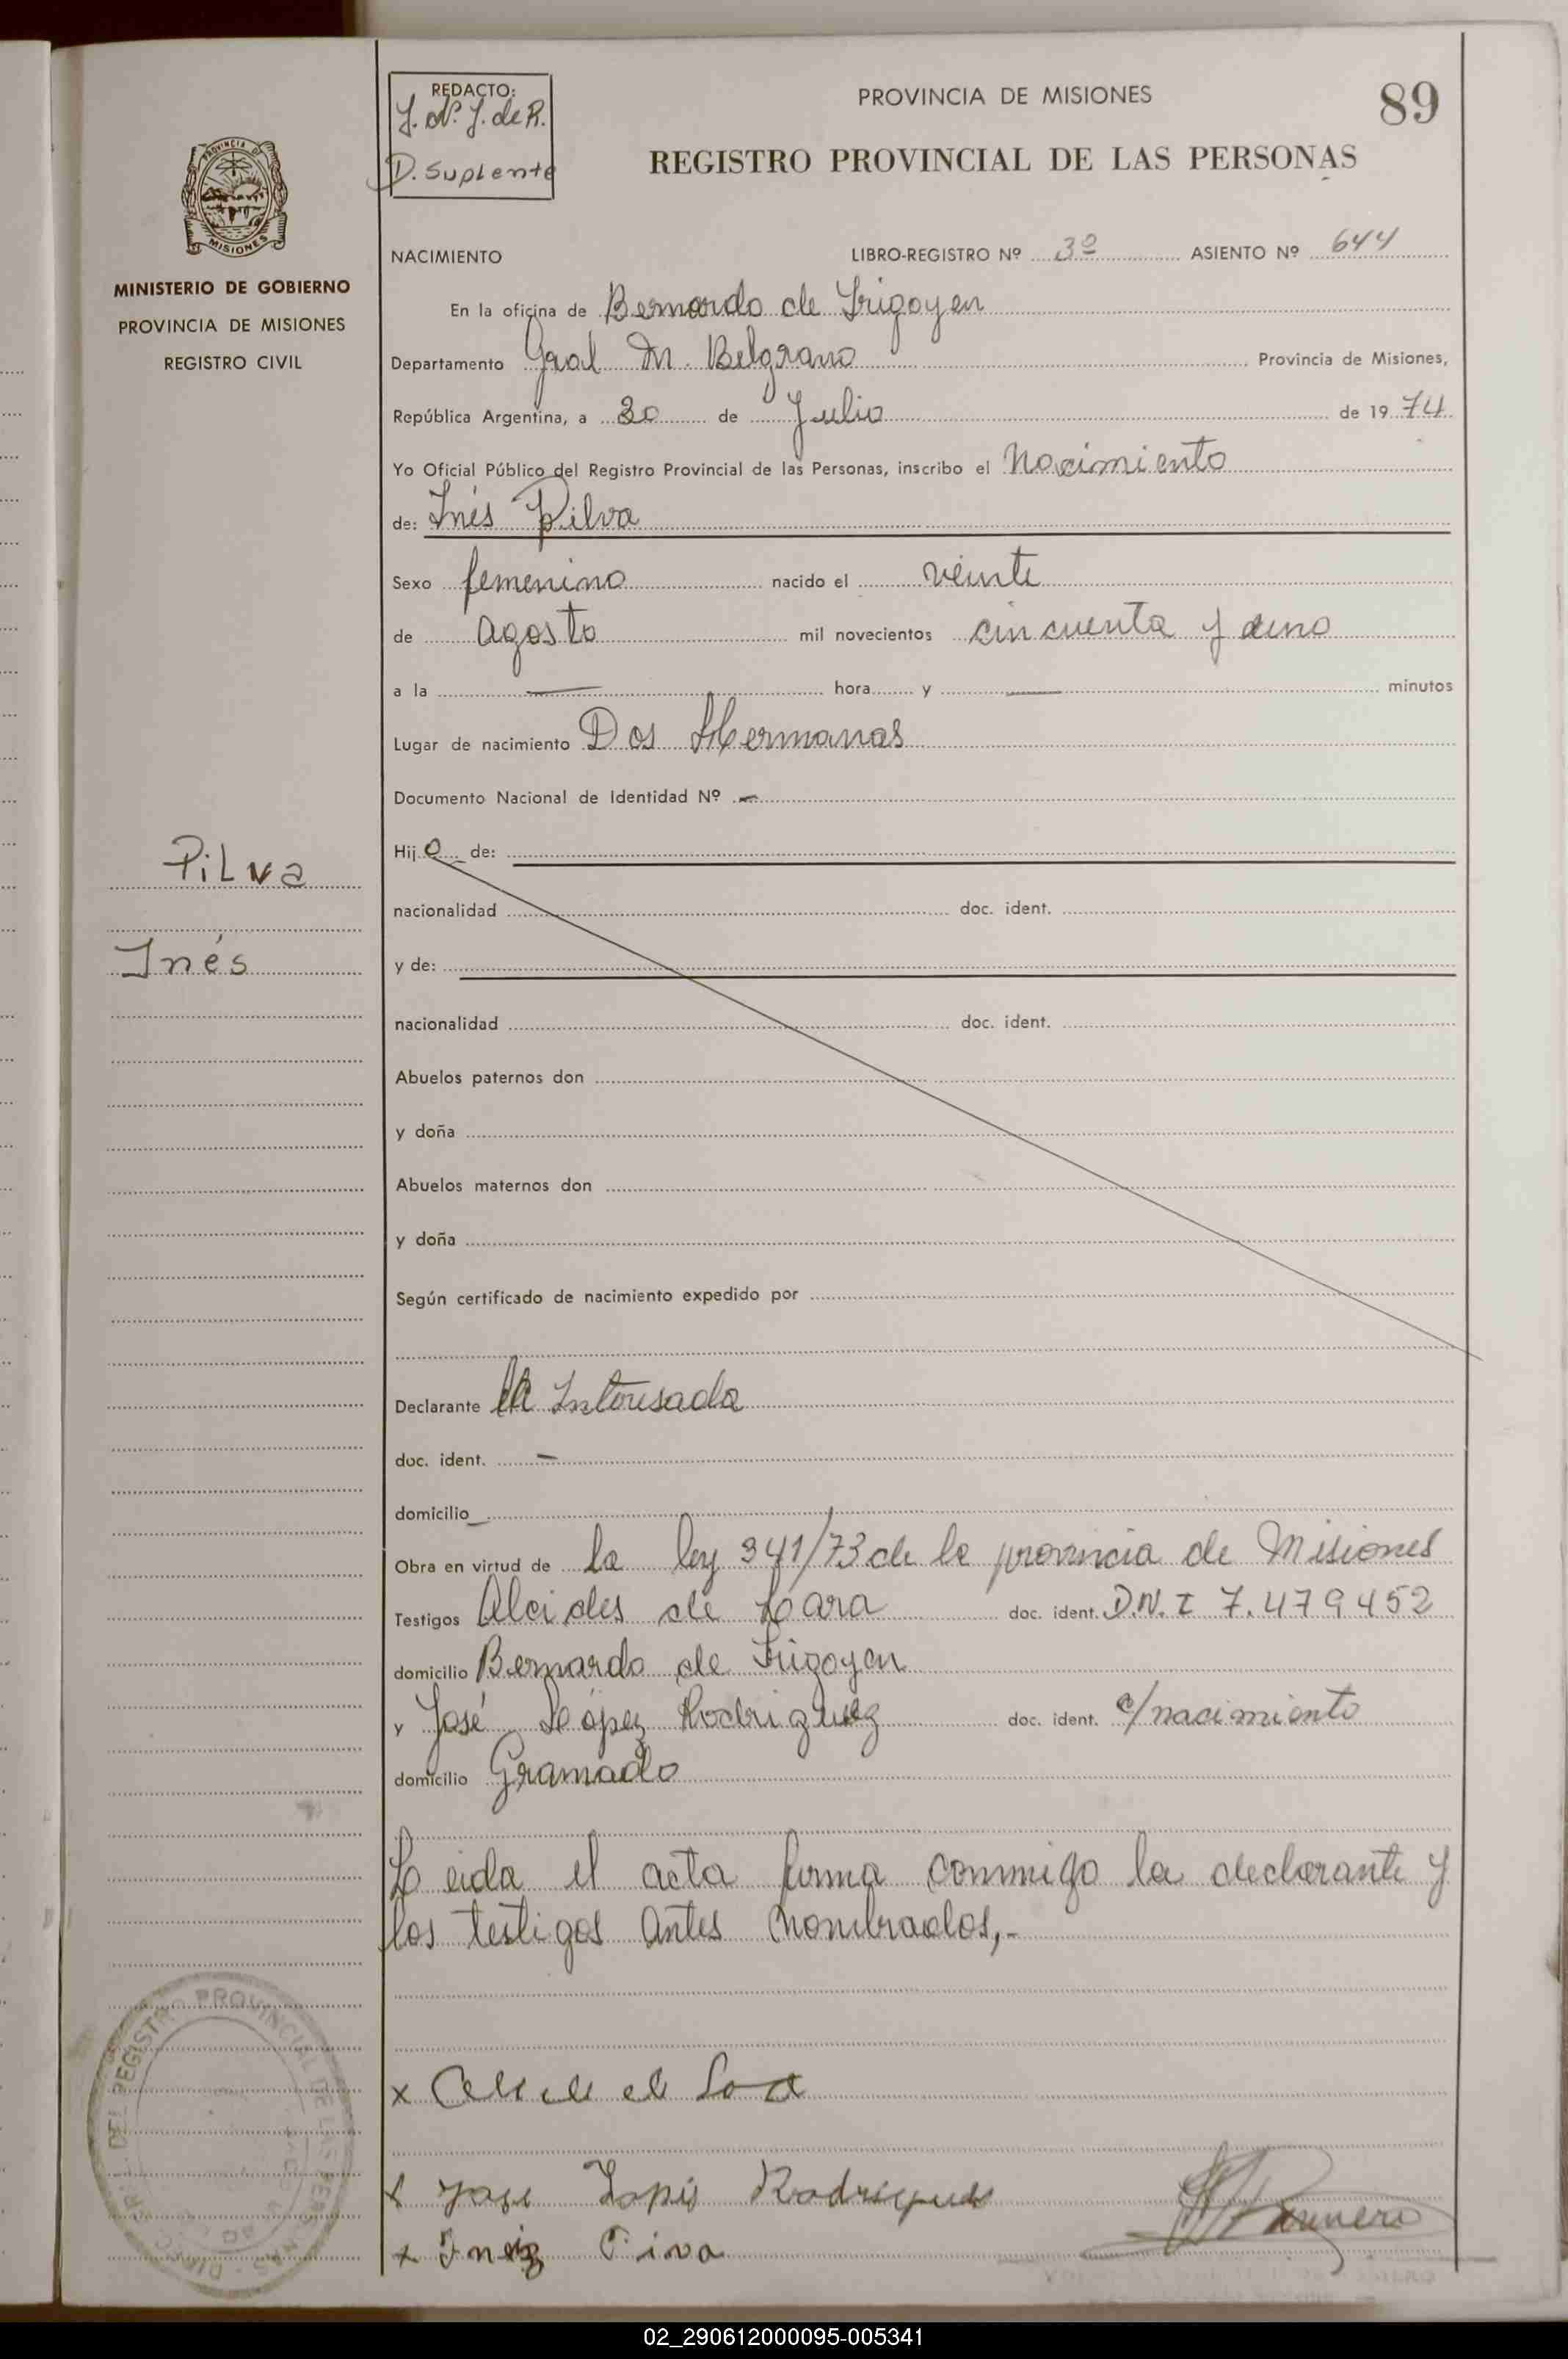 REDACTO:
J. Nº. J. de R.
D. Suplente
PROVINCIA DE MISIONES
89
REGISTRO PROVINCIAL DE LAS PERSONAS
PROVINCIA DE
MISIONES
MINISTERIO DE GOBIERNO
PROVINCIA DE MISIONES
REGISTRO CIVIL
NACIMIENTO LIBRO-REGISTRO Nº 3º ASIENTO Nº 644
En la oficina de Bernardo de Irigoyen
Departamento Gral M. Belgrano Provincia de Misiones,
República Argentina, a 30 de Julio de 1974
Yo Oficial Público del Registro Provincial de las Personas, inscribo el Nacimiento
de: Inés Pilva
Sexo femenino nacido el veinte
de agosto mil novecientos cincuenta y uno
a la — hora y — minutos
Lugar de nacimiento Dos Hermanas
Documento Nacional de Identidad Nº —
Pilva
Inés
Hij o de:
nacionalidad doc. ident.
y de:
nacionalidad doc. ident.
Abuelos paternos don
y doña
Abuelos maternos don
y doña
Según certificado de nacimiento expedido por
Declarante la Interesada
doc. ident. —
domicilio —
Obra en virtud de la ley 341/73 de la provincia de Misiones
Testigos Alcides de Lara doc. ident. D.N.I 7.479452
domicilio Bernardo de Irigoyen
y José López Rodriguez doc. ident. c/nacimiento
domicilio Gramado
Leida el acta firma conmigo la declarante y
los testigos antes nombrados,.-
x
x Jose Lopis Rodrigues
x Ineiz Piva
DEL REGISTRO PROVINCIAL DE LAS PERSONAS
02_290612000095-005341